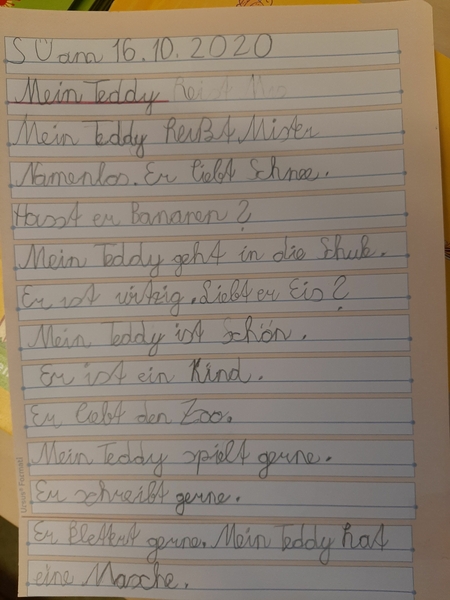 SÜ am 16.10.2020
Mein Teddy
Mein Teddy Reißt Mister
Namenlos. Er liebt Schnee.
Hasst er Bananen?
Mein Teddy geht in die Schule.
Er ist witzig. Liebt er Eis?
Mein Teddy ist schön.
Er ist ein Kind.
Er liebt den Zoo.
Mein Teddy spielt gerne.
Er schreibt gerne.
Er Blettert gerne. Mein Teddy hat
eine Masche.